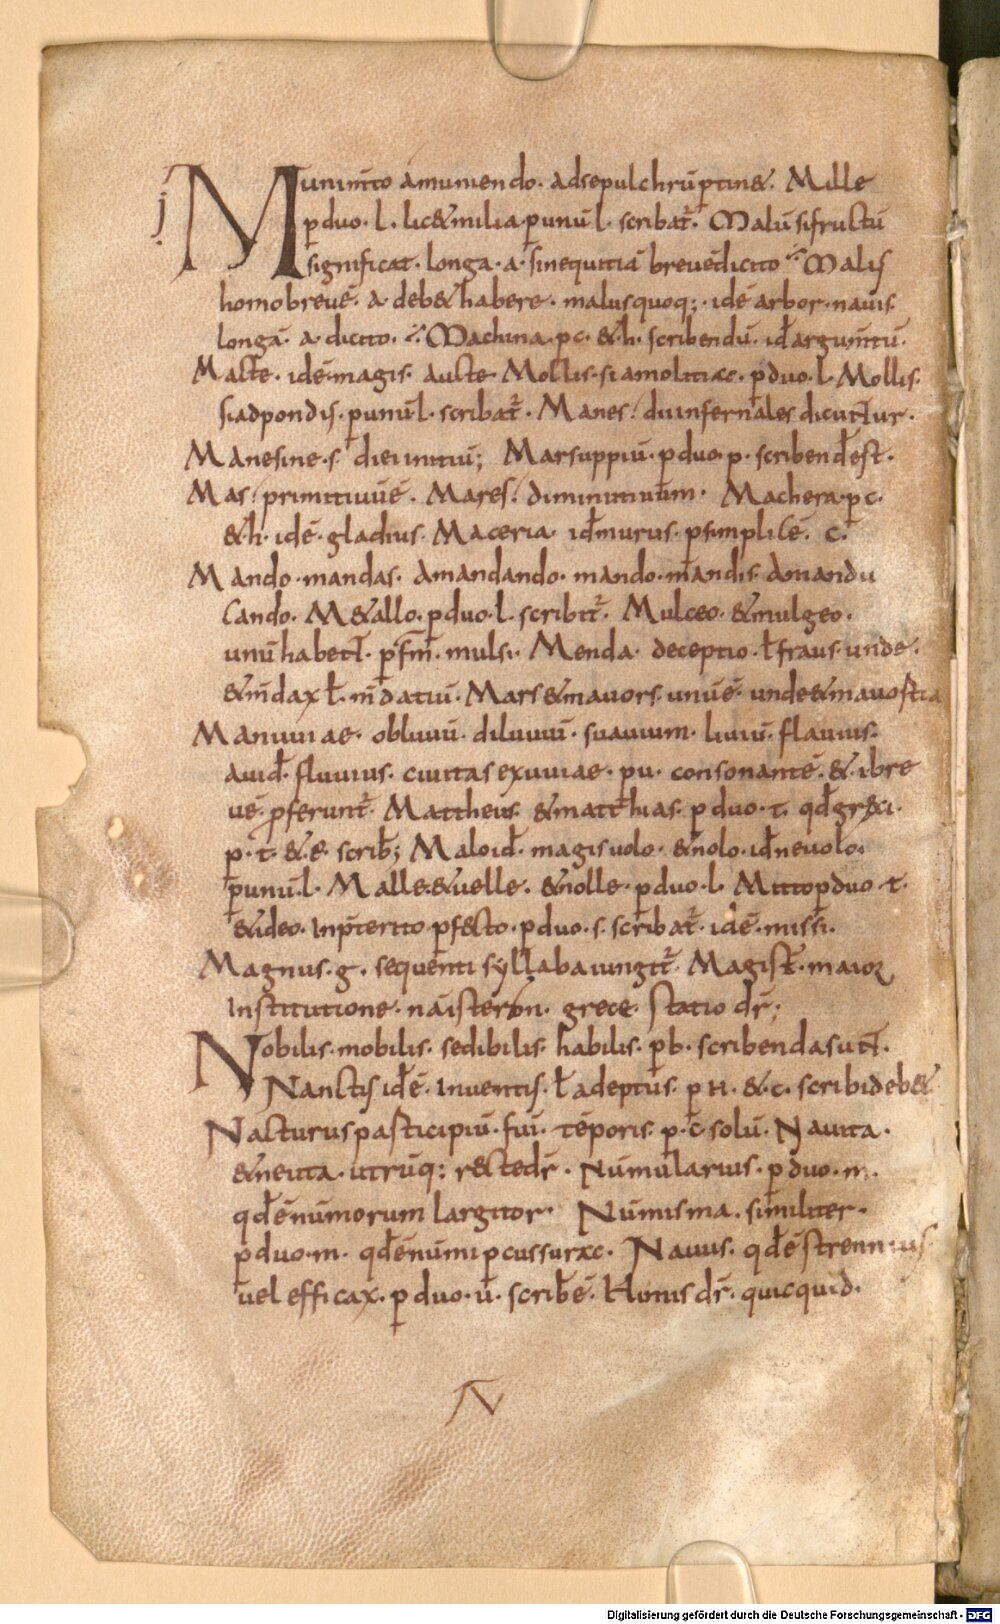 Munimto amuniendo. adsepulchrū ptin&. Mille
j
p duo. l. lic& milia. p unū l. scribat᷑. Malū si fructū
significat. longa. a. sinequitiā brevē dicito Malis
homo brevē. a. deb& habere. malus quoq; idē arbor. navis
longā. a. dicito. Machina. p c. & h. scribendū. id argumtū.
Macte. idē. magis. aucte. Mollis. si amolitiae. p duo. l. Mollis.
si ad pondis. p unū l. scribat᷑. Manes. dii infernales dicuntur.
Manesine. s. diei initiū; Marsuppiū. p duo. p. scribend est.
Mas. primitivū ē. Mares. diminutivum. Machera. p c.
& h. idē. gladius. Maceria. id murus. p simplicē. c.
Mando. mandas. amandando. mando. mandis. amandu
cando. M&allo. p duo. l. scribit᷑. Mulceo. & mulgeo.
unū habent. p fm. mulsi. Menda. deceptio. ł fraus. unde.
& mdax ł. mdatiū. Mars & mavors. unū ē. unde & mavostia
Manuviae. obluviū. diluviū. suavium. liviū. flavius.
avid. fluvius. civitas exuviae. p u. consonantē. & i bre
vē pferunt᷑. Mattheus. & matthias. p duo. t. qd greci.
p. t. & e. scrib; Malo id. magis volo. & nolo. id nevolo.
p unū l. Malle. & velle. & nolle. p duo. l. Mitto p duo t.
& ideo. In pterito pf&to. p duo. s. scribat᷑. idē. missi.
Magnus. g. sequenti syllaba iungit᷑. Magist. maior
Institutione. naisteron. grece. statio dr;
Nobilis. mobilis. sedibilis. habilis. p b. scribenda sunt.
Nanctis idē. Inventis. ł adeptus. p N. & c. scribi deb&
Nacturus pasticipiū. fuī. tēporis. p. c solū. Navita.
& neuta. utrūq; r&te dr. Nūmularius. p duo. m.
qd ē nūmorum largitor. Nūmisma. similiter.
p duo. m. qd ē nūmi pcussurae. Navus. qd ē strennuus
vel efficax. p duo. u. scribē. Honis dr. quicquid.
N
Digitalisierung gefördert durch die Deutsche Forschungsgemeinschaft - DFG